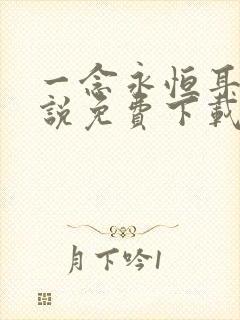 一念永恒耳
説免費下載
月下吟1